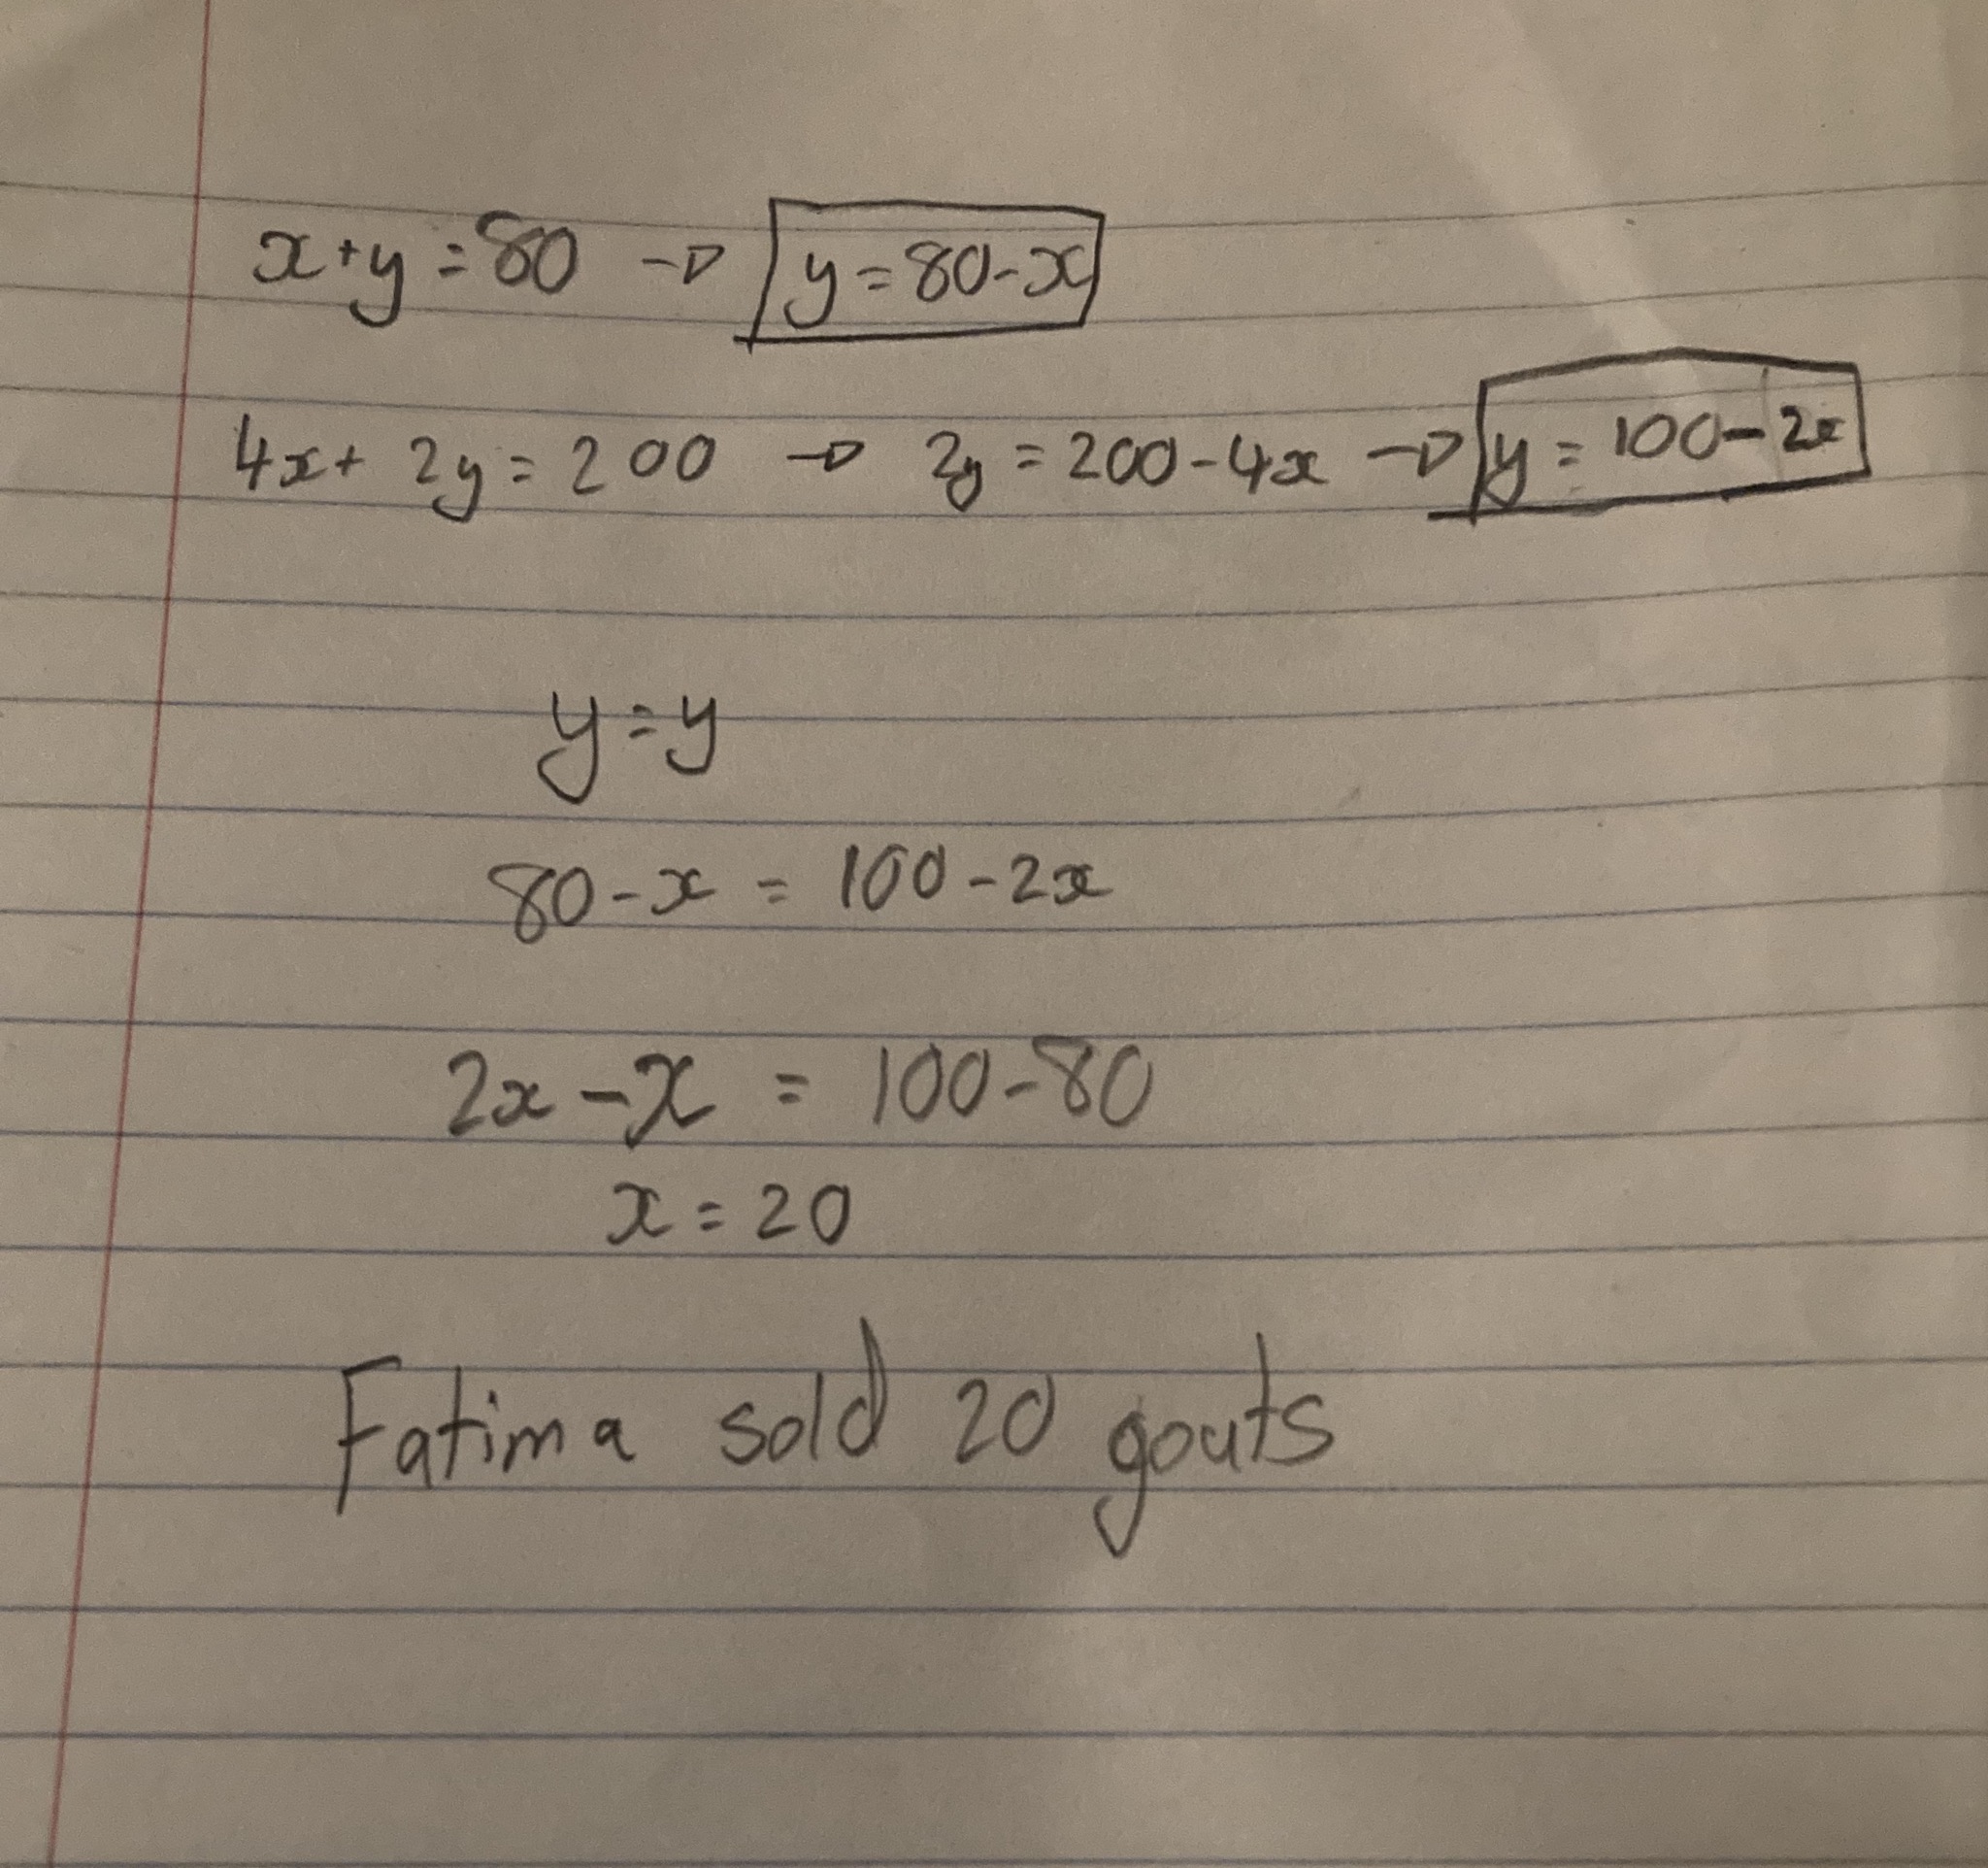 x+y=80 → y=80-x
4x+2y=200 → 2y=200-4x → y=100-2x
y=y
80-x=100-2x
2x-x=100-80
x=20
Fatima sold 20 gouts